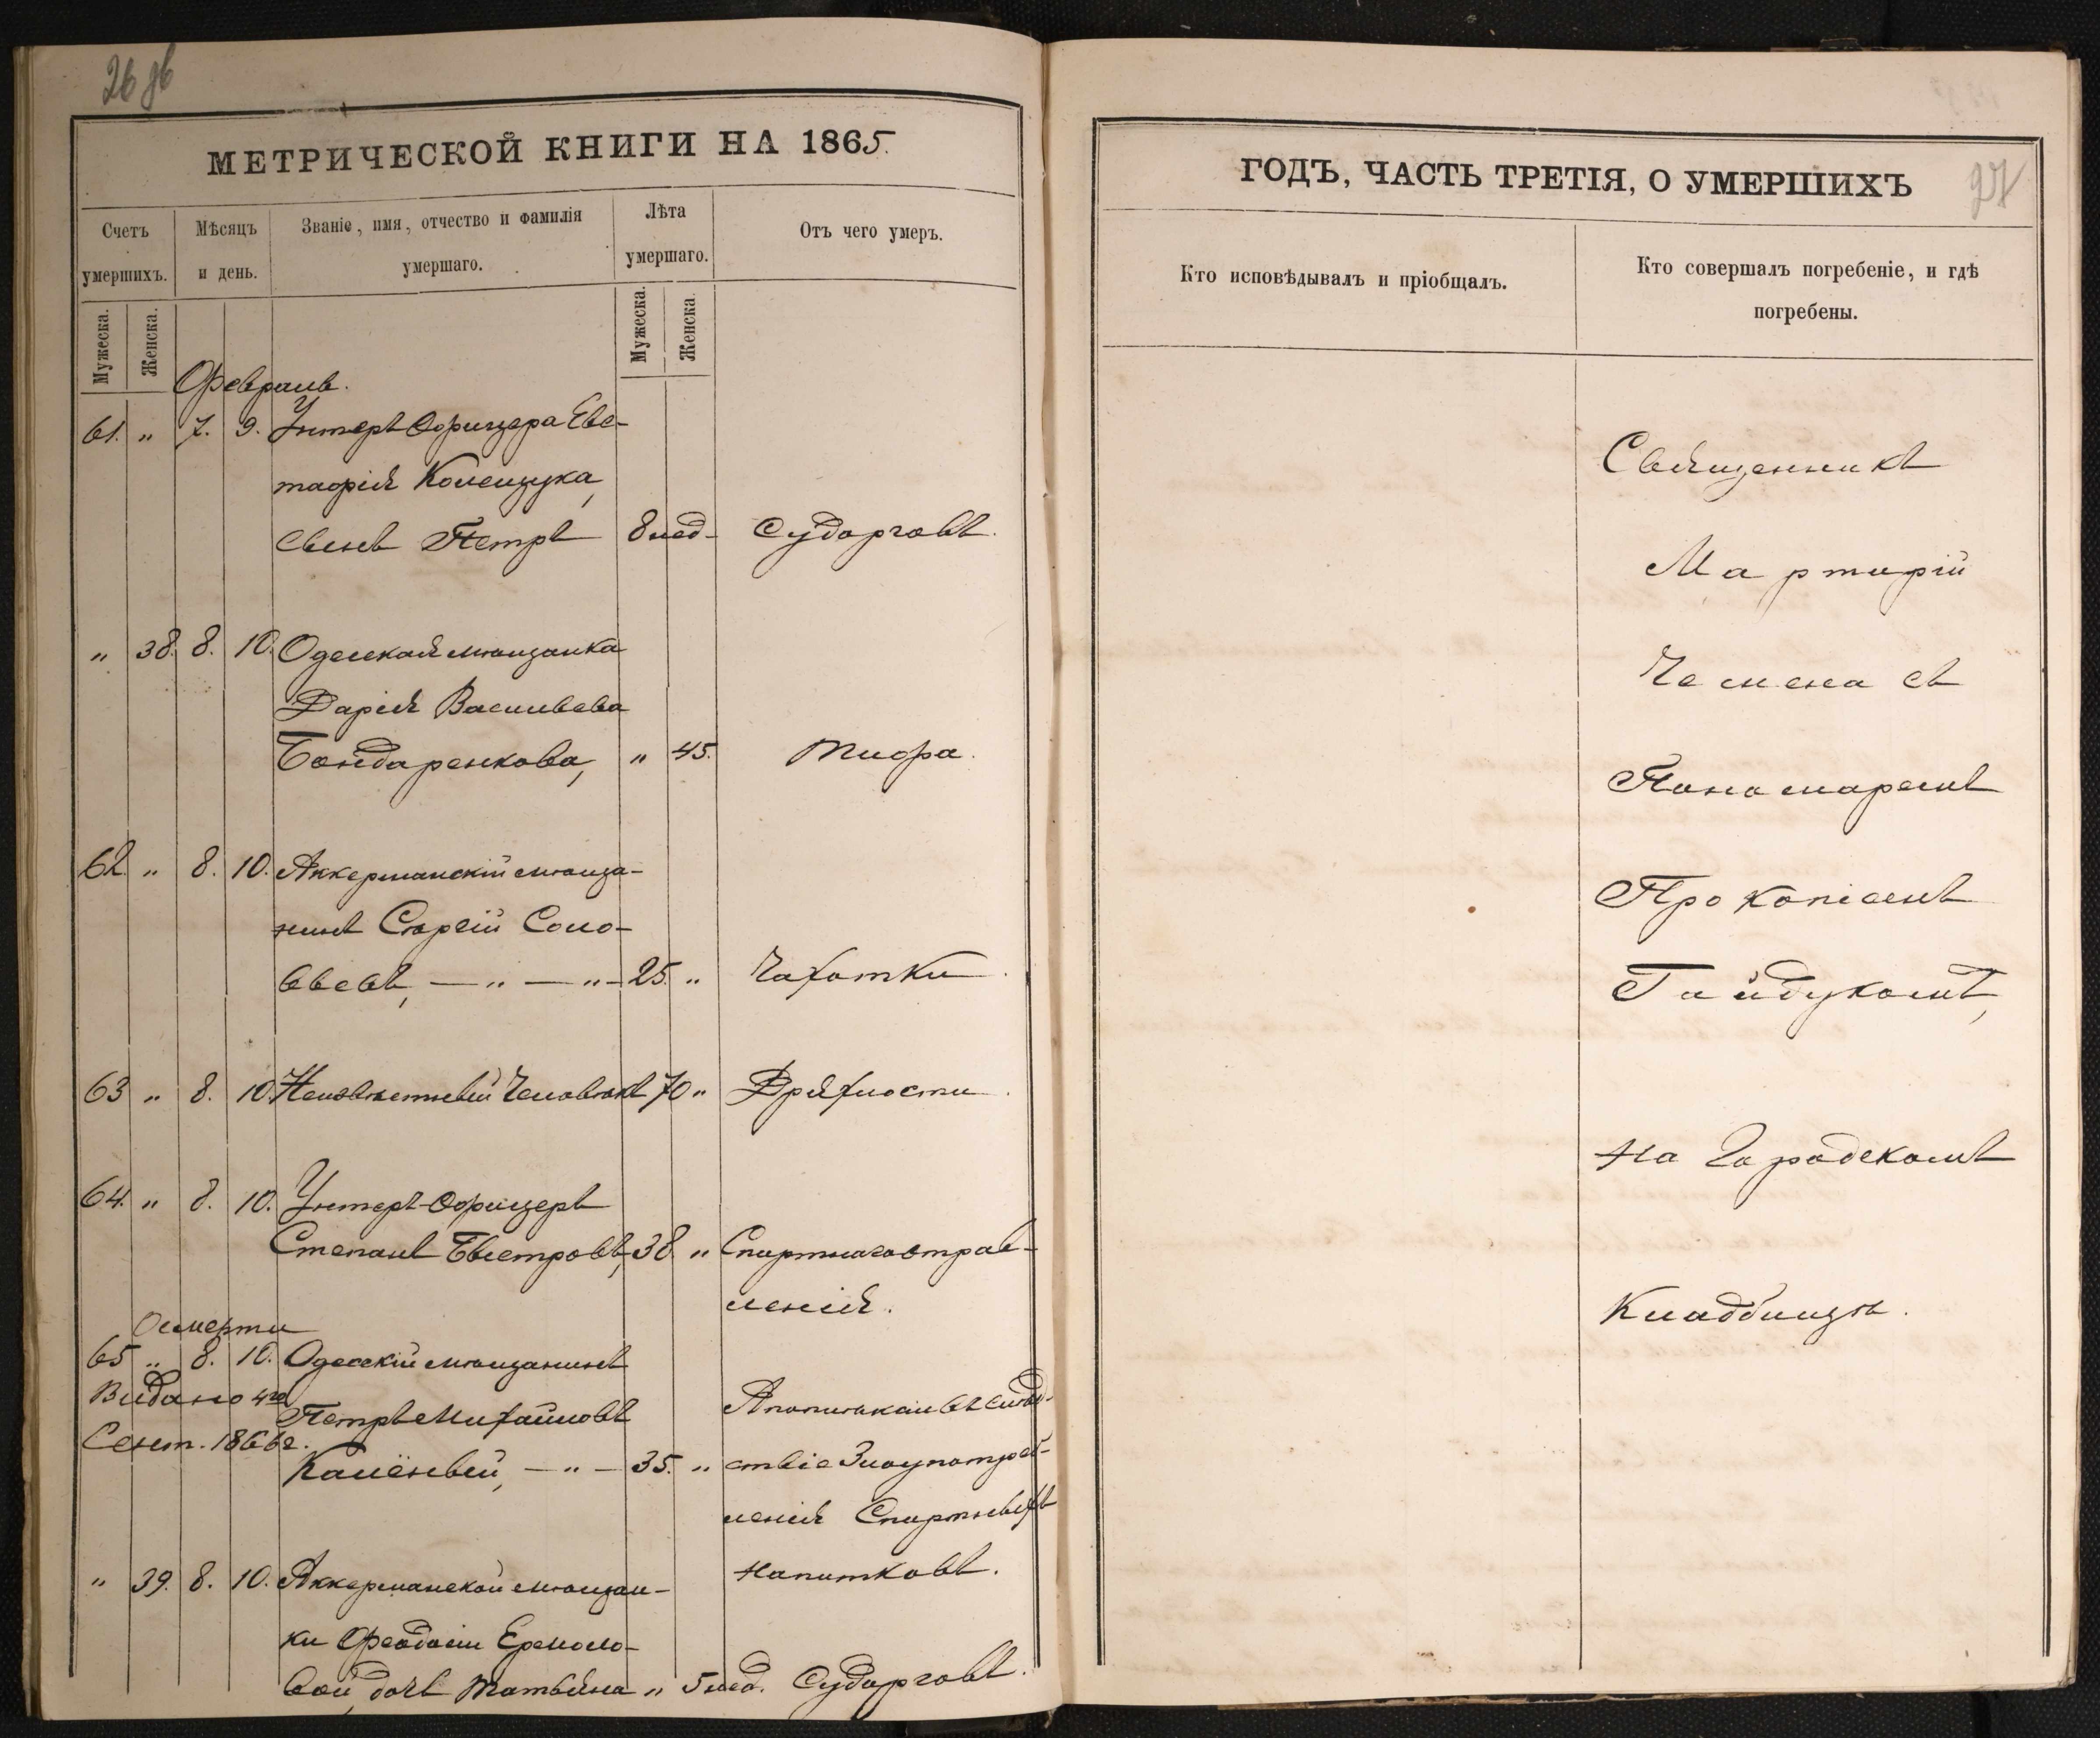 26 об
МЕТРИЧЕСКОЙ КНИГИ НА 1865.
Счетъ умершихъ.
Мѣсяцъ и день.
Званіе, имя, отчество и фамилія умершаго.
Лѣта умершаго.
Отъ чего умеръ.
Мужеска.
Женска.
Мужеска.
Женска.
Февраль.
61. „ 7. 9. Унтеръ Офицера Ев-
стафія Колещука,
сынъ Петръ 8 нед. Судорговъ.
„ 38. 8. 10. Одесская мѣщанка
Дарія Васильева
Бондаренкова, „ 45. Тифа.
62. „ 8. 10. Аккерманскій мѣща-
нинъ Сергій Соло-
вьевъ, — „ — „ — 25. „ Чахотки.
63 „ 8. 10. Неизвѣстный Человѣкъ 70 „ Дряхлости.
64. „ 8. 10. Унтеръ-Офицеръ
Степанъ Быстровъ, 38. „ Спиртнаго отрав-
ленія.
О смерти
65 „ 8. 10. Одесскій мѣщанинъ
Видано 4го
Петръ Михайловъ Апоплексіи въ слѣд-
Сент. 1866 г.
Калёный, — „ — 35. „ ствіе Злоупотреб-
ленія Спиртныхъ
„ 39. 8. 10. Аккерманской мѣщан- напитковъ.
ки Феодосіи Ермоло-
вой, дочь Татьяна „ 5 нед. Судорговъ.
ГОДЪ, ЧАСТЬ ТРЕТІЯ, О УМЕРШИХЪ
27
Кто исповѣдывалъ и пріобщалъ.
Кто совершалъ погребеніе, и гдѣ погребены.
Священникъ
Мартирій
Чемена съ
Пономаремъ
Прокопіемъ
Гайдукомъ,
На Городскомъ
Кладбищѣ.